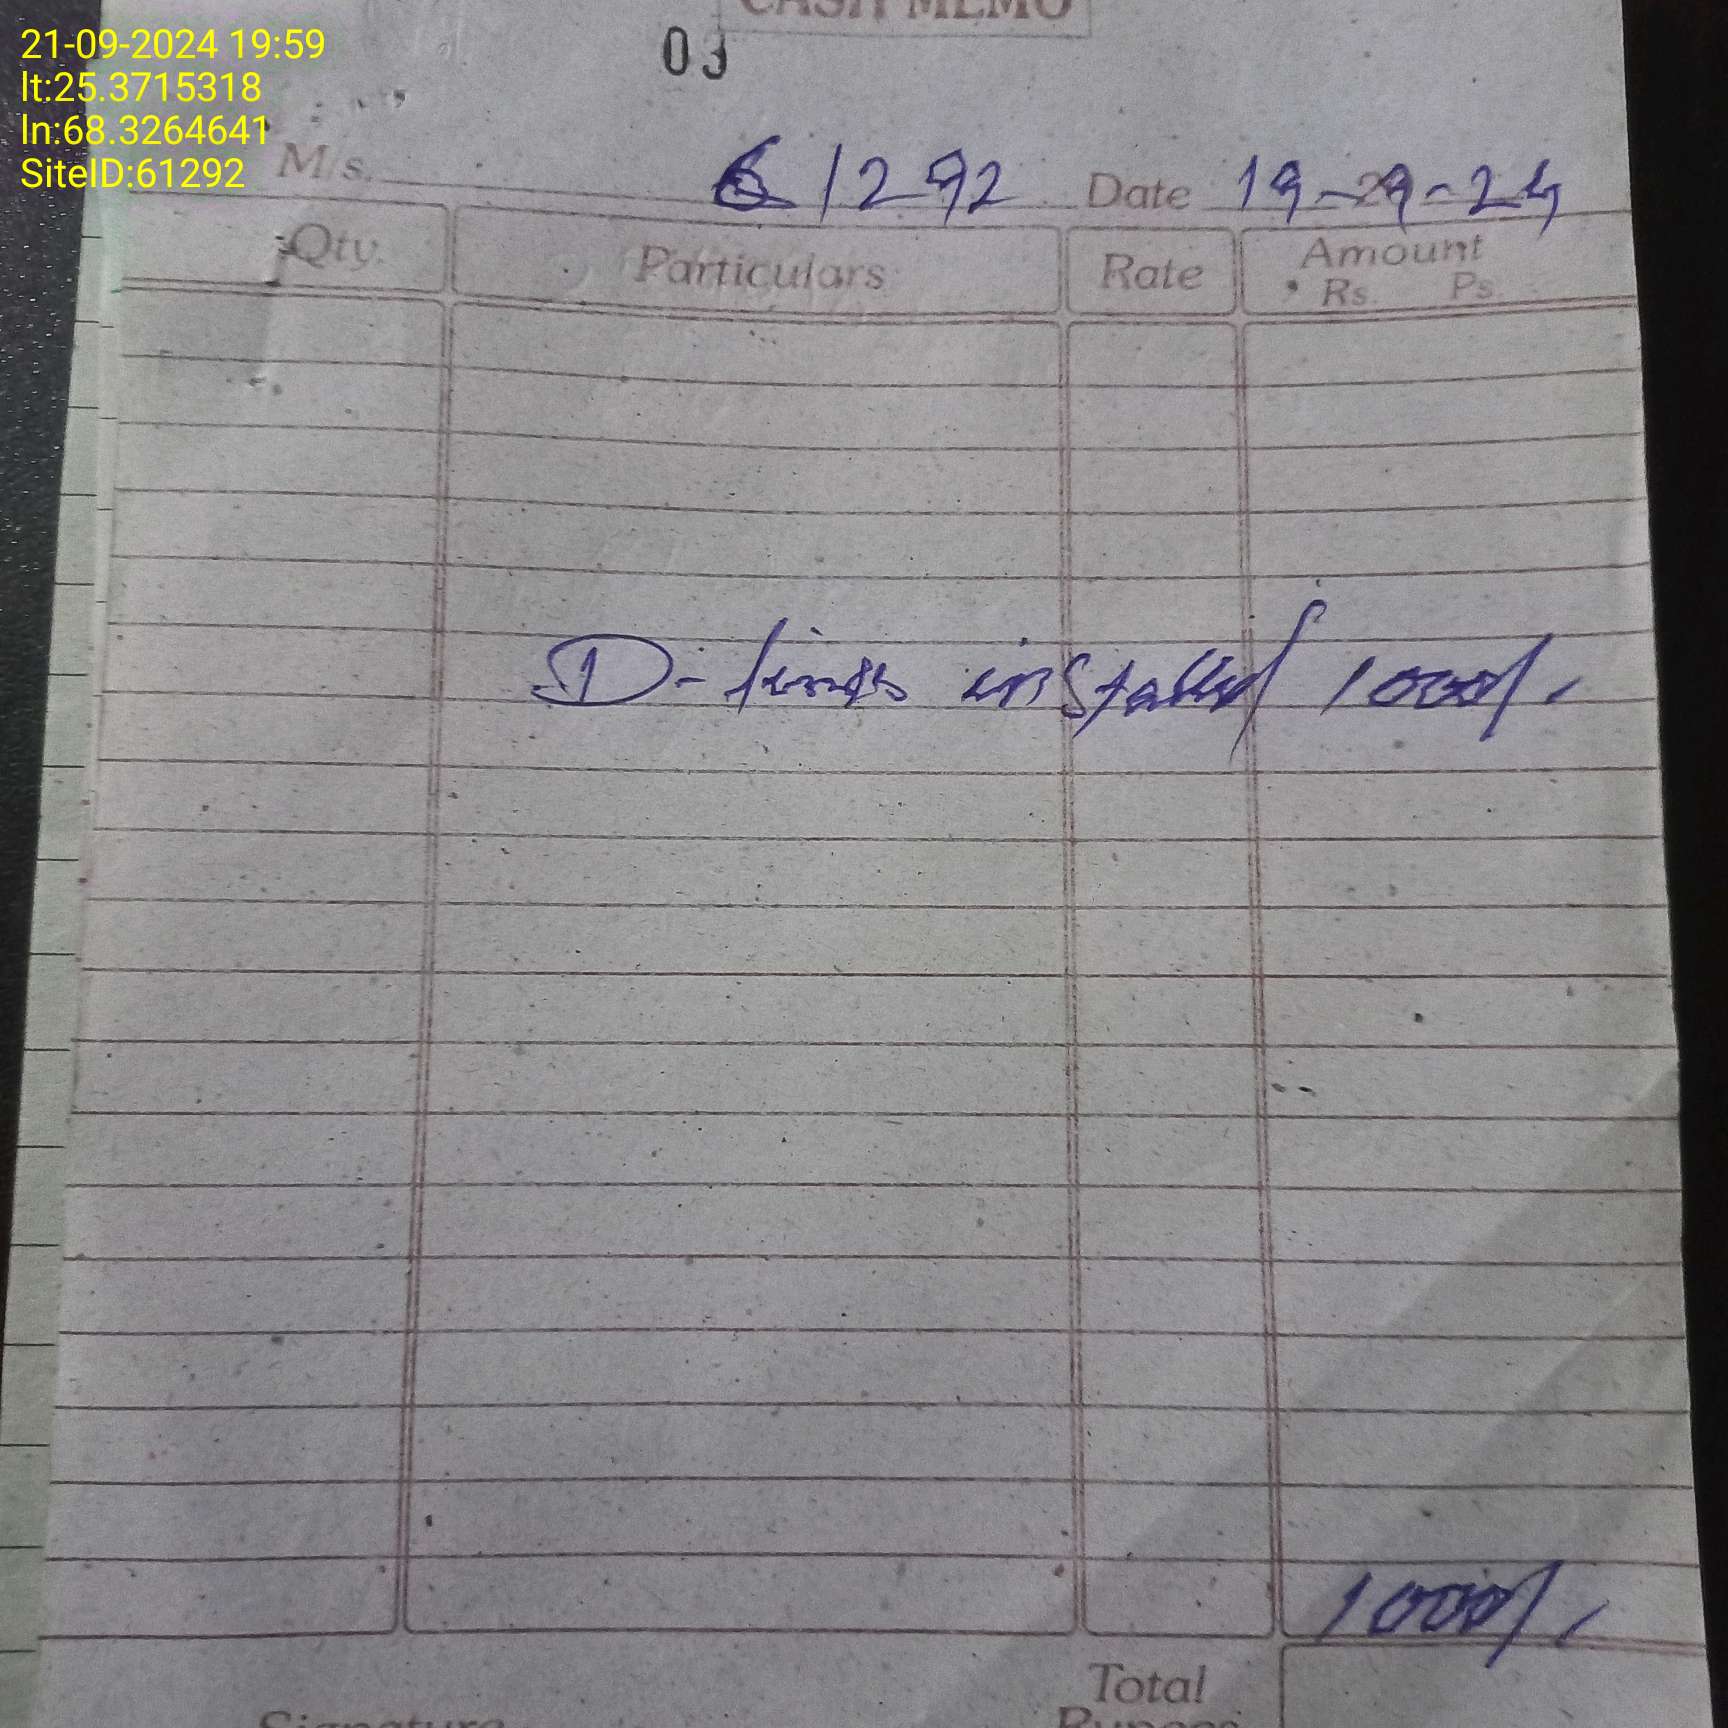 21-09-2024 19:59
lt:25.3715318
ln:68.3264641
SiteID:61292
CASH MEMO
03
M/s. 61292 Date 19-29-24
Qty. Particulars Rate Amount
Rs. Ps.
D- installed 1000/-
1000/-
Total
Signature Rupees